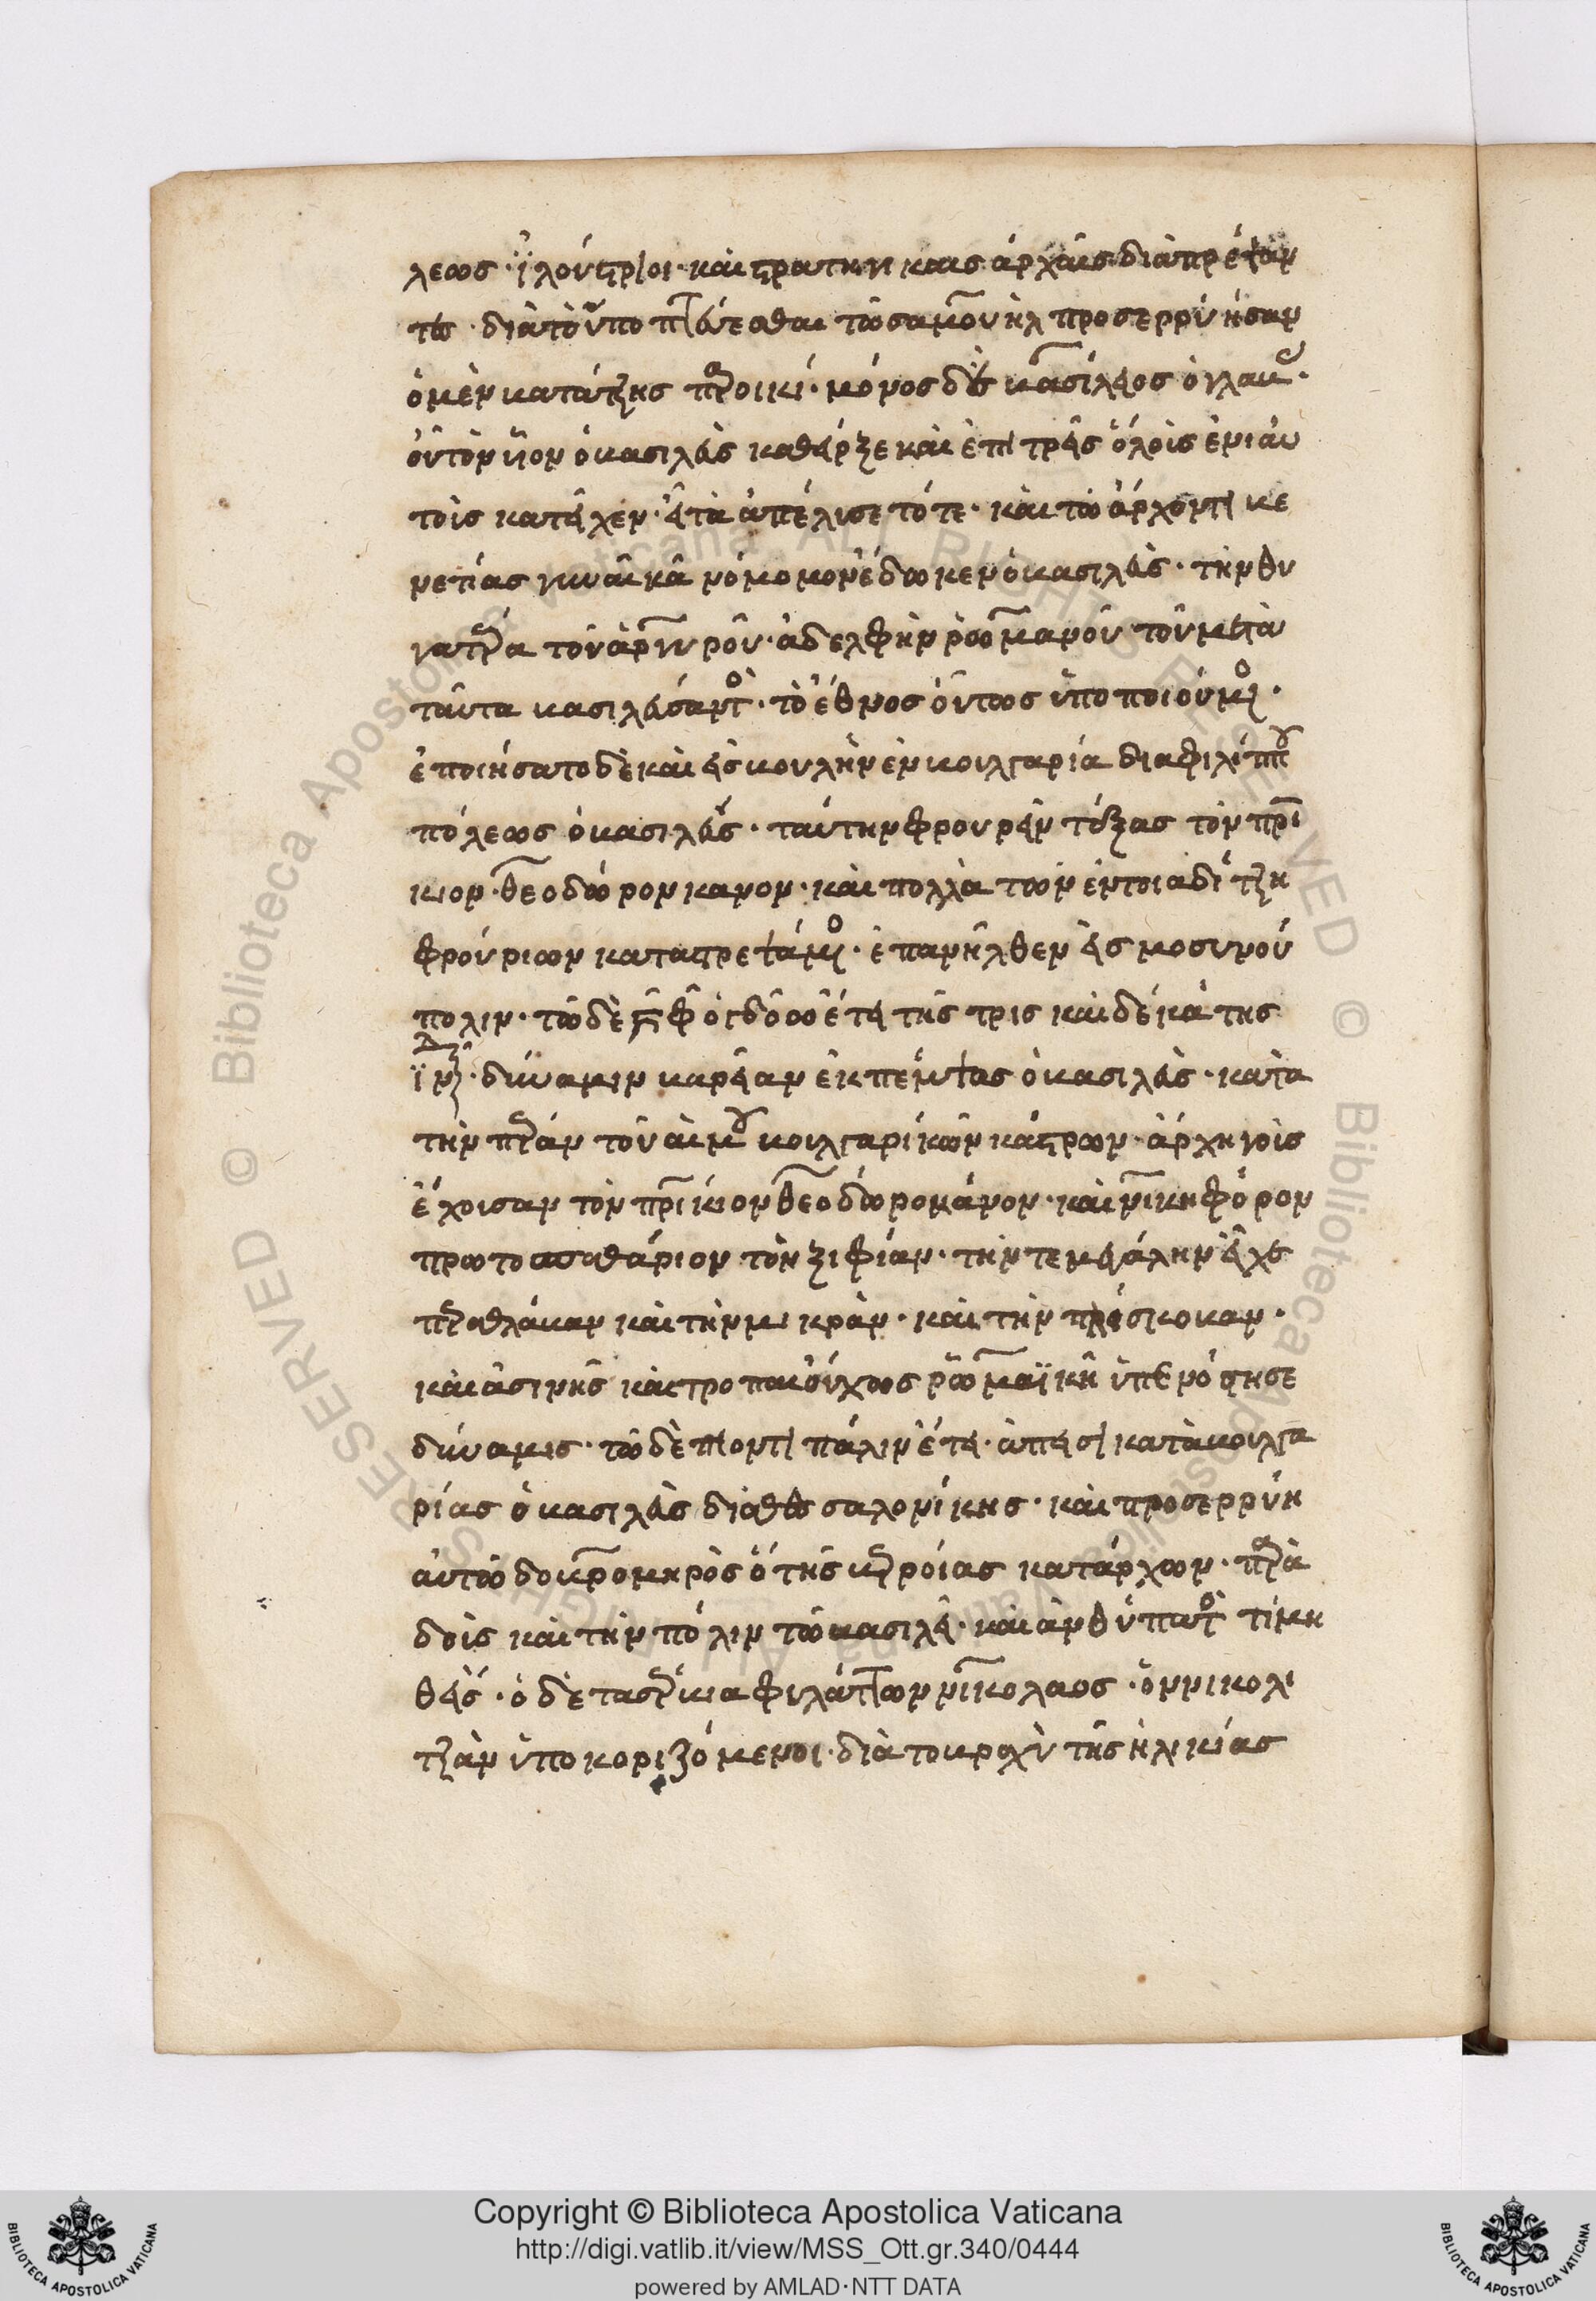 λεως· ἰλούστριοι· καὶ στρατηγικαῖς ἀρχαῖς διαπρέψαν
τες· διὰ τὸ ὑποπτεύεσθαι τῶ σαμουὴλ προσερρύησαν
ὁ μὲν κατάτζης περιοικί· μόνος δὺς βασίλειος ὁ γλαβ·
οὗ τὸν υἱὸν ὁ βασιλεὺς καθεῖρξε καὶ ἐπὶ τρεῖς ὅλοις ἐνιαυ
τοῖς κατεῖχεν· εἶτα ἀπέλισε τότε· καὶ τῶ ἄρχοντι βε
νετίας γυναῖκα νόμομον ἔδωκεν ὁ βασιλεὺς· τὴν θυ
γατέρα τοῦ ἀργυροῦ· ἀδελφὴν ῥωμανοῦ τοῦ μετὰ
ταῦτα βασιλεύσαντος· τὸ ἔθνος οὕτως ὑποποιούμενος·
ἐποιήσατο δὲ καὶ εἰσβουλὴν ἐν βουλγαρία δια φιλίππου
πόλεως ὁ βασιλεὺς· ταύτην φρουρεῖν τάξας τὸν πρί
κιον· θεοδώρον κανον· καὶ πολλὰ τῶν ἐν τριαδίτζη
φρούριων καταστρεψάμενος· ἐπανῆλθεν εἰς μοσυνού
πολιν· τῶ δὲ ϛφ ὀγδόω ἔτει τῆς τρισκαιδεκάτης
ἰνδ· δύναμιν βαρεῖαν ἐκπέμψας ὁ βασιλεὺς· κατὰ
τὴν πέραν τοῦ αἵμου βουλγαρικῶν κάστρων· ἀρχηγοὶς
ἔχοισαν τὸν πρίκιον θεοδώροκάνον· καὶ νικηφόρον
πρωτοσπαθάριον τὸν ξιφίαν· τὴν τε μεγάλην εἷχε
περσθλάβαν καὶ τὴν μικρὰν· καὶ τὴν πλίσκοβαν·
καὶ ἀσινῆς καὶ τροπαιούχως ῥωμαϊκὴ ὑπενόστησε
δύναμις· τῶ δὲ πιοντι πάλιν ἔτει· ἄπεισι κατὰ βουλγα
ρίας ὁ βασιλεὺς διὰ θεσσαλονίκης· καὶ προσερρύη
αὐτῶ δοβρομηρὸς ὁ τῆς βερροίας κατάρχων· παρα
δοὶς καὶ τὴν πόλιν τῶ βασιλεῖ· καὶ ἀνθύπατος τιμη
θεὶς· ὁ δὲ τα σέρβια φυλάττων νικολαος· ὃν νικολι
τζὰν ὑποκοριζόμενοι· διὰ το βραχὺ τῆς ἡλικίας